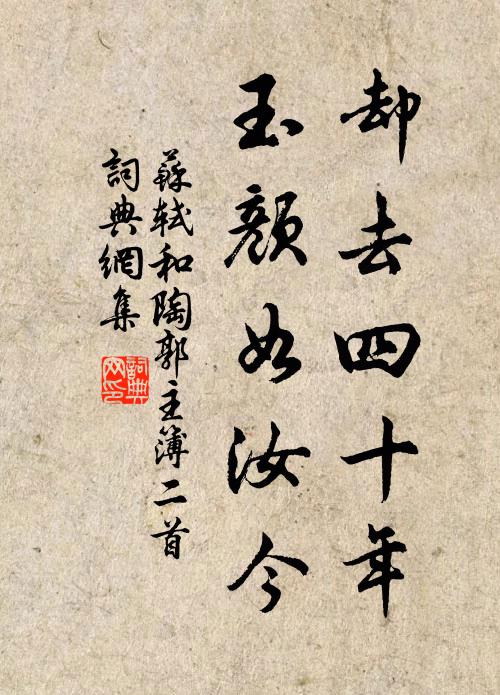 却去四十年
玉顏如汝今
蘇軾和陶郭主簿二首
詞典網集
詞典
网印